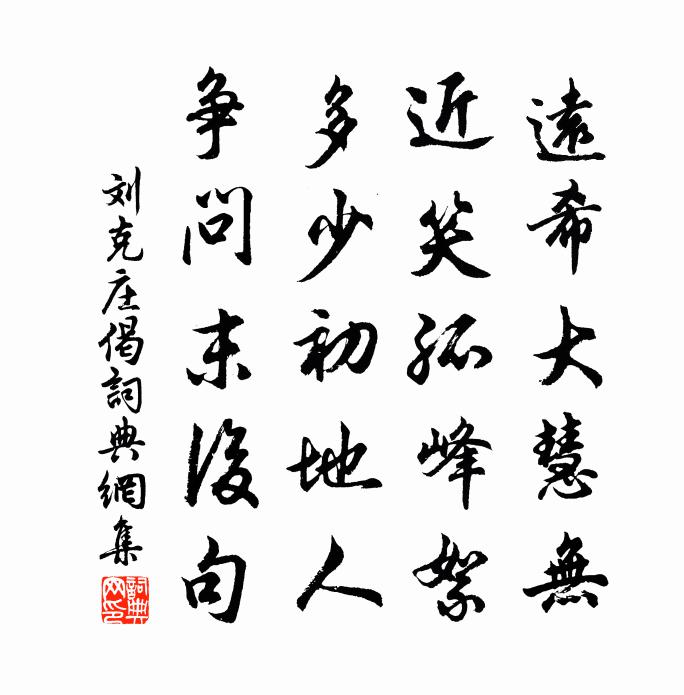 遠希大慧無
近笑孤峰絮
多少初地人
争問末後句
刘克庄偈詞典網集
詞典网印